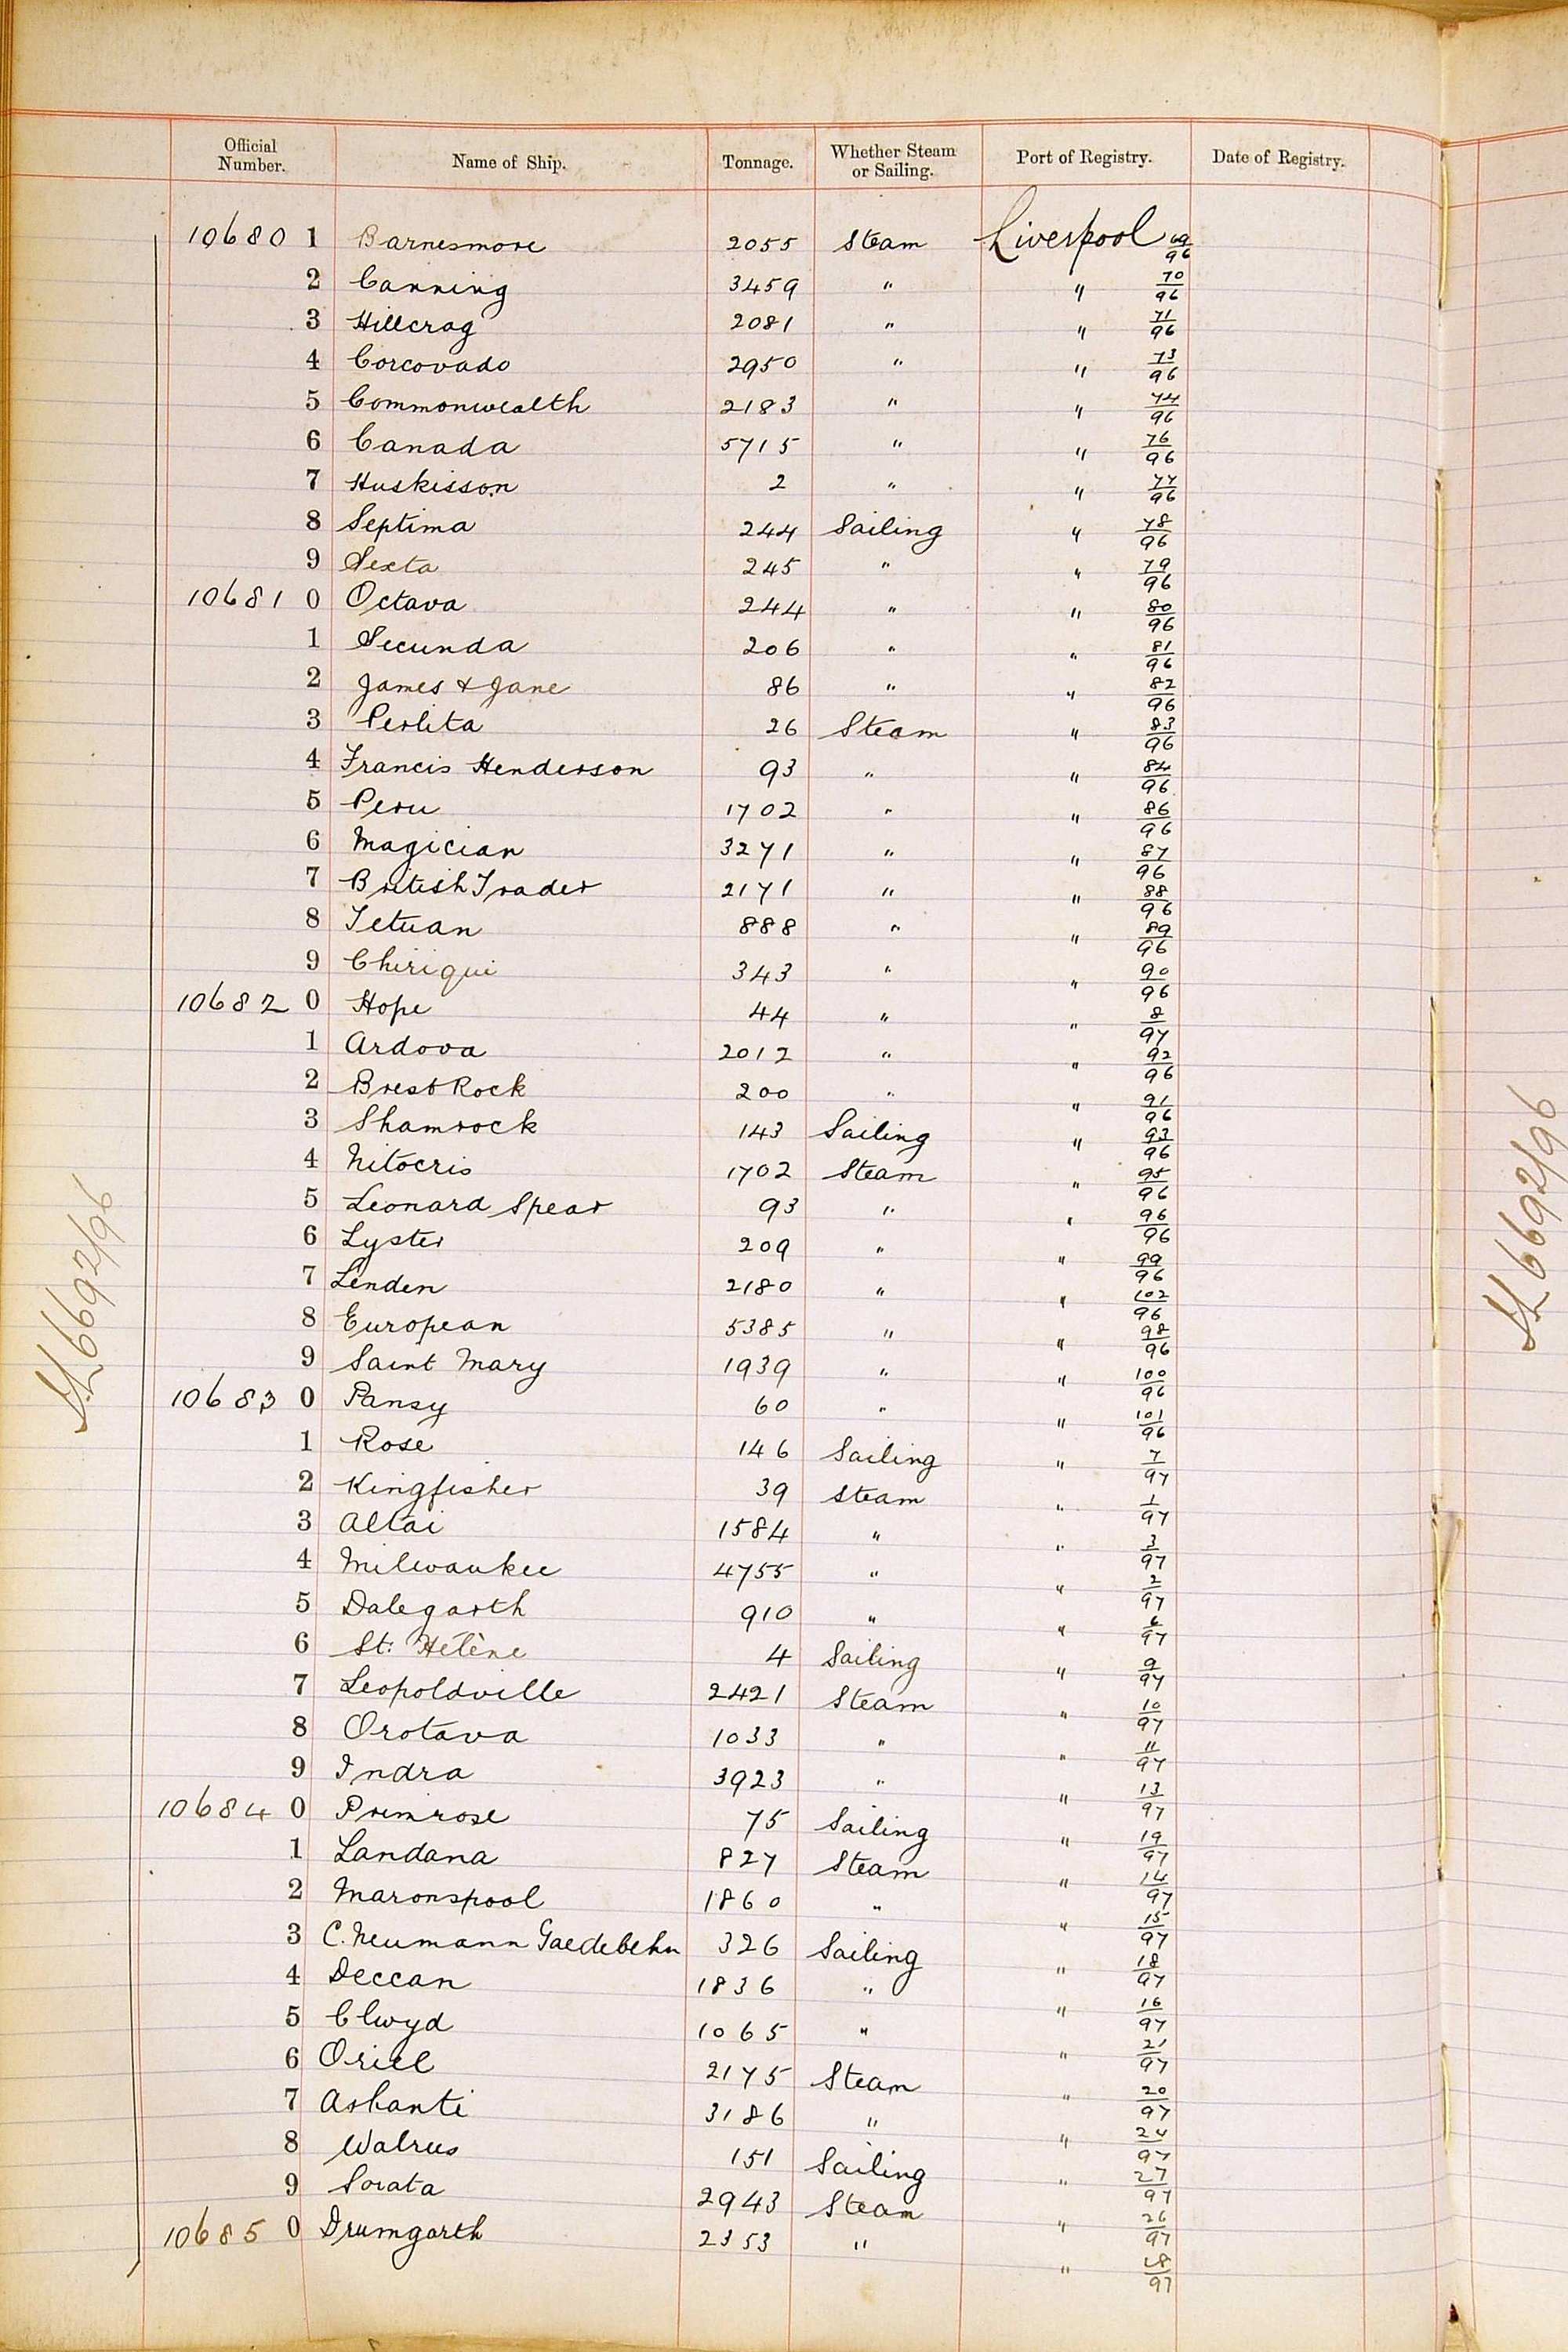 Official Number. Name of Ship. Tonnage. Whether Steam or Sailing. Port of Registry. Date of Registry.
10680 1 Barnesmore 2055 Steam Liverpool 69/96
2 Canning 3459 " " 70/96
3 Hillcrag 2081 " " 71/96
4 Corcovado 2950 " " 73/96
5 Commonwealth 2183 " " 74/96
6 Canada 5715 " " 76/96
7 Huskisson 2 " " 77/96
8 Septima 244 Sailing " 78/96
9 Sexta 245 " " 79/96
10681 0 Octava 244 " " 80/96
1 Secunda 206 " " 81/96
2 James & Jane 86 " " 82/96
3 Perlita 26 Steam " 83/96
4 Francis Henderson 93 " " 84/96
5 Peru 1702 " " 86/96
6 Magician 3271 " " 87/96
7 British Trader 2171 " " 88/96
8 Tetuan 888 " " 89/96
9 Chiriqui 343 " " 90/96
10682 0 Hope 44 " " 8/97
1 Ardova 2012 " " 92/96
2 Brest Rock 200 " " 91/96
3 Shamrock 143 Sailing " 93/96
4 Nitocris 1702 Steam " 95/96
5 Leonard Spear 93 " " 96/96
6 Lyster 209 " " 99/96
7 Linden 2180 " " 102/96
8 European 5385 " " 98/96
9 Saint Mary 1939 " " 100/96
10683 0 Pansy 60 " " 101/96
1 Rose 146 Sailing " 7/97
2 Kingfisher 39 Steam " 1/97
3 Altai 1584 " " 3/97
4 Milwaukee 4755 " " 2/97
5 Dalegarth 910 " " 6/97
6 St: Hélène 4 Sailing " 9/97
7 Leopoldville 2421 Steam " 10/97
8 Orotava 1033 " " 11/97
9 Indra 3923 " " 13/97
10684 0 Primrose 75 Sailing " 19/97
1 Landana 827 Steam " 14/97
2 Maronspool 1860 " " 15/97
3 C. Neumann Gaedebehn 326 Sailing " 18/97
4 Deccan 1836 " " 16/97
5 Clwyd 1065 " " 21/97
6 Oriel 2175 Steam " 20/97
7 Ashanti 3186 " " 24/97
8 Walrus 151 Sailing " 27/97
9 Sorata 2943 Steam " 26/97
10685 0 Drumgarth 2353 " " 28/97
6692/96
6692/96